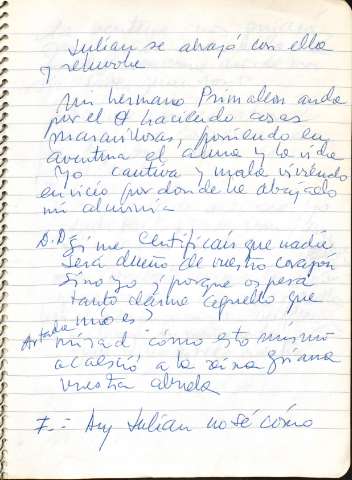 Julian se abajó con ella
y revuelve
Mi hermano Primaleon anda
por el haciendo cosas
maravillosas, poniendo en
aventura el alma y la vida
Yo cautiva y mala viviendo
en vicio por donde he abajado
mi
D.D. Si me certificais que nadie
será dueño de vuestro corazon
sino yo ¿porque os pesa
tanto darme aquello que
mio es?
Artada mirad cómo esto mismo
acaesció a la reina Griana
vuestra abuela
F.- Ay Julian no sé cómo